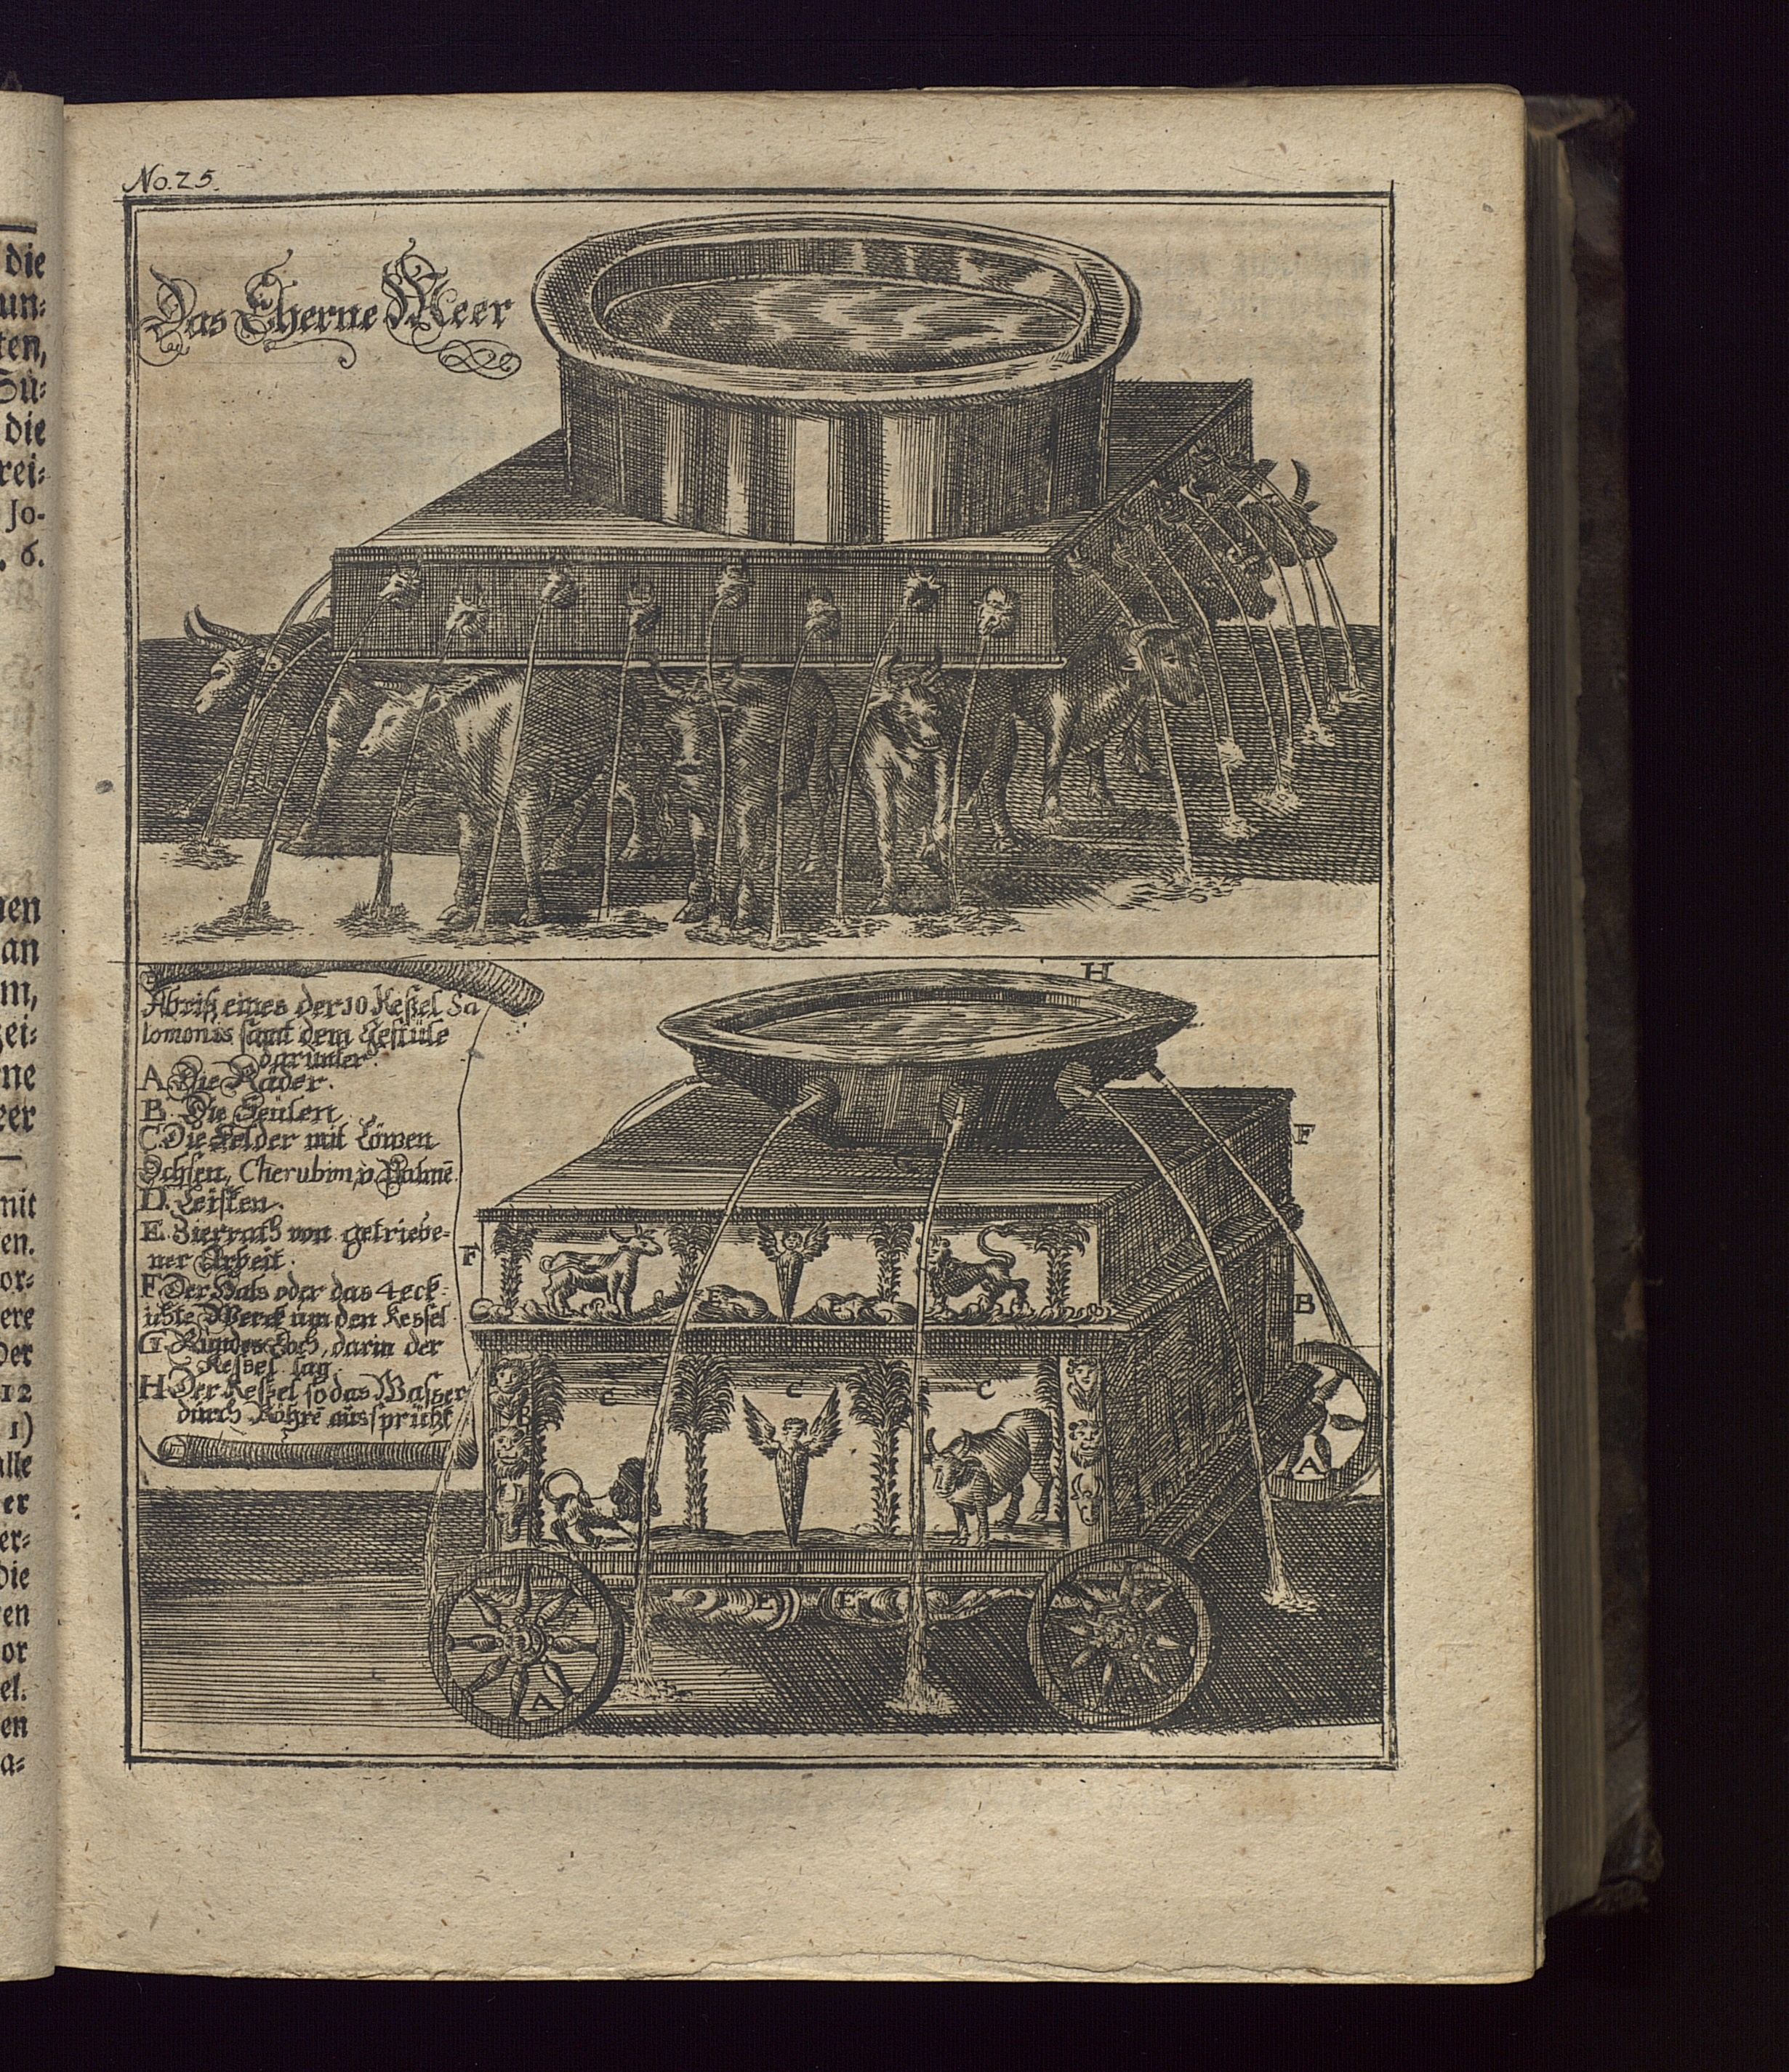 die
un⸗
ten,
Sü⸗
die
rei⸗
Jo-
. 6.
nen
an
m,
zei⸗
ne
eer
mit
en.
or⸗
ere
Der
12
1)
alle
er
er⸗
die
en
or
el.
en
a⸗
No. 25.
Das Eherne Meer
Abriß eines der 10 Keßel Sa
lomonis samt dem Gestüle
darunter.
A Die Räder.
B. Die Seülen
C. Die Felder mit Löwen
Ochsen, Cherubim, v Palmē
D. Leisten.
E. Zierrath von getriebe-
ner Arbeit.
F Der Hals oder das 4eck-
ichte Werck um den Kessel
G Rundes Loch, darin der
Kessel lag.
H Der Keßel so das Waßer
durch Röhrē aussprützt
H
F
F
E
E
B
C
C
C
B
A
E
E
A